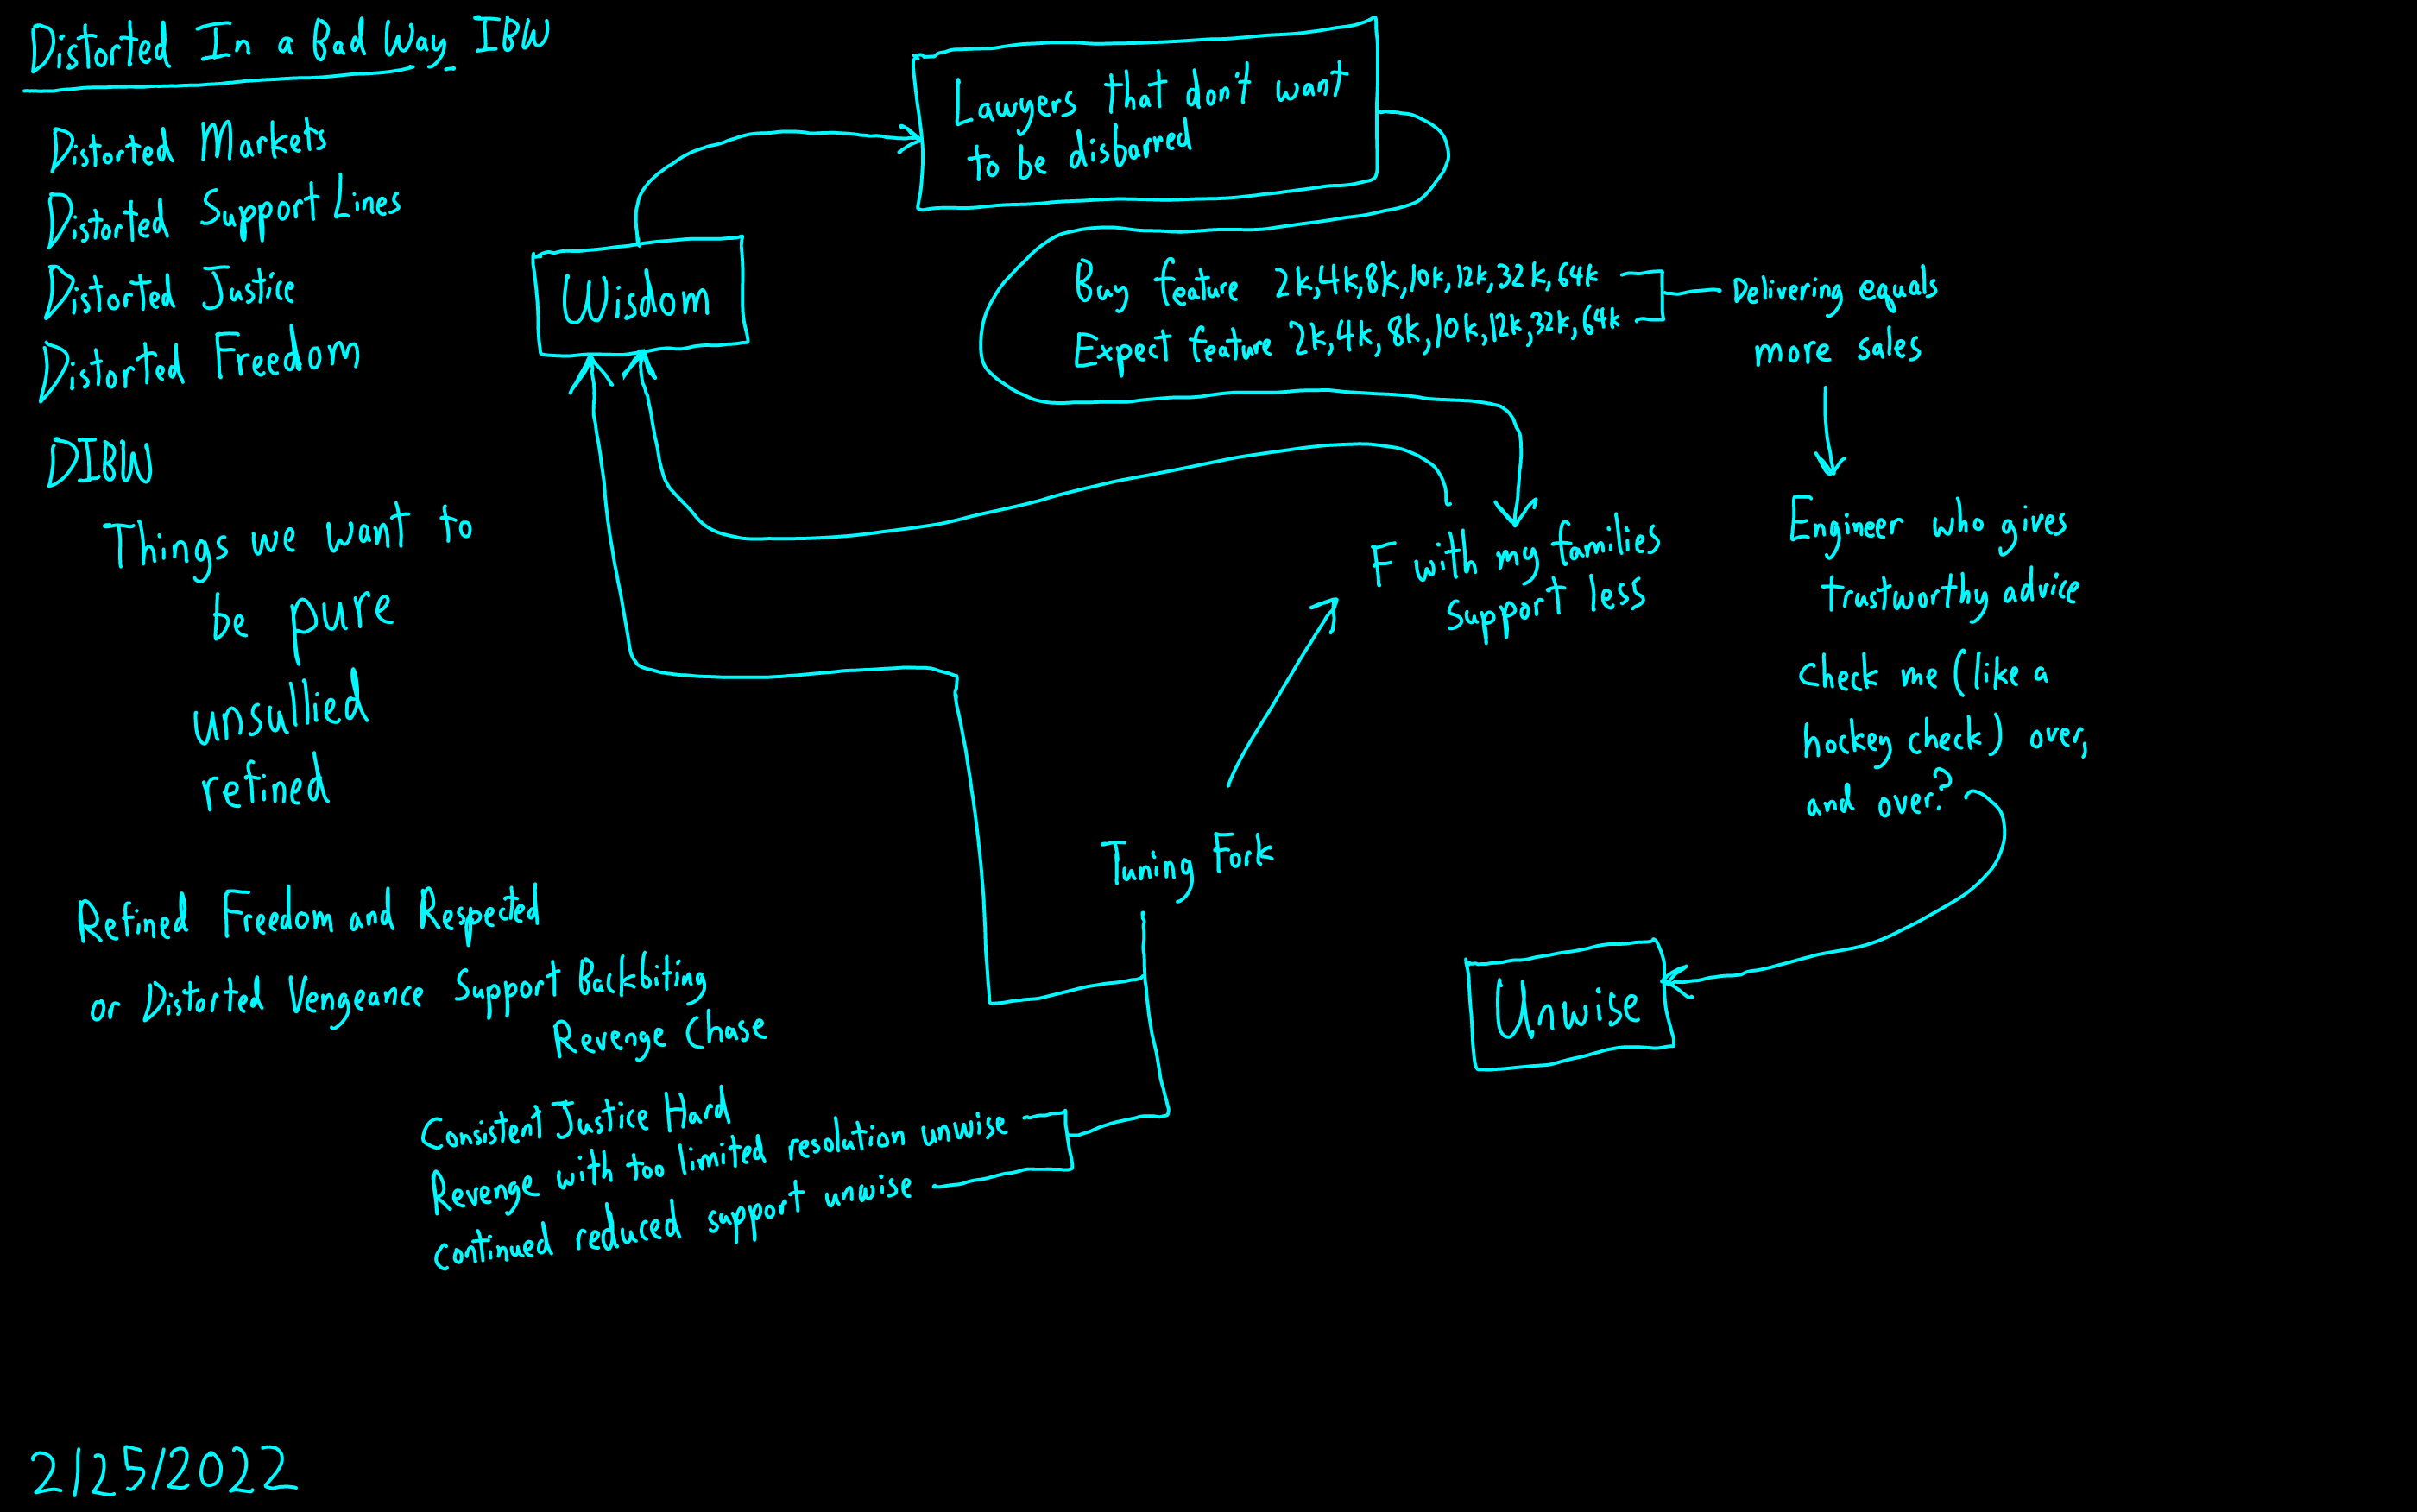 Distorted In a Bad Way IBW
Distorted Markets
Distorted Support Lines
Distorted Justice
Distorted Freedom
DIBW
Things we want to
be pure
unsullied
refined
Refined Freedom and Respected
or Distorted Vengeance Support Backbiting
Revenge Chase
Consistent Justice Hard
Revenge with too limited resolution unwise
continued reduced support unwise
Wisdom
Lawyers that don't want
to be disbarred
Buy feature 2k,4k,8k,10k,12k,32k,64k
Expect feature 2k,4k,8k,10k,12k,32k,64k
Delivering equals
more sales
F with my families
support less
Engineer who gives
trustworthy advice
Check me (like a
hockey check) over,
and over?
Tuning Fork
Unwise
2/25/2022